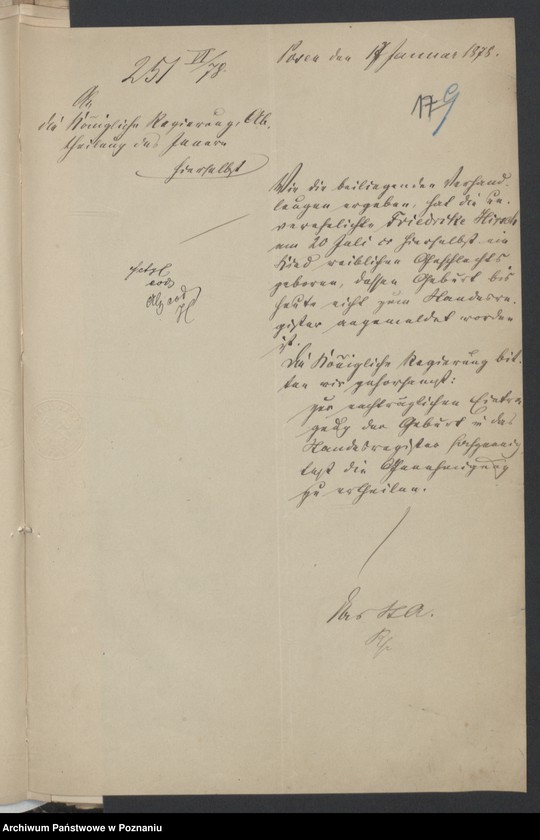 251 VI/78.
Posen den 17 Januar 1878.
179
An
die Königliche Regierung, Ab-
theilung des Innern
hierselbst
Wie die beiliegenden Verhand-
lungen ergeben, hat die un-
verehelichte Friedricke Hirsch
am 20 Juli hierselbst ein
Kind weiblichen Geschlechts
geboren, dessen Geburt bis
heute nicht zum Standesre-
gister angemeldet worden
ist.
Die Königliche Regierung bit-
ten wir gehorsamst:
zur nachträglichen Eintra-
gung der Geburt in das
Standesregister hochgeneig-
test die Genehmigung
zu ertheilen.
Das St A.
Archiwum Państwowe w Poznaniu